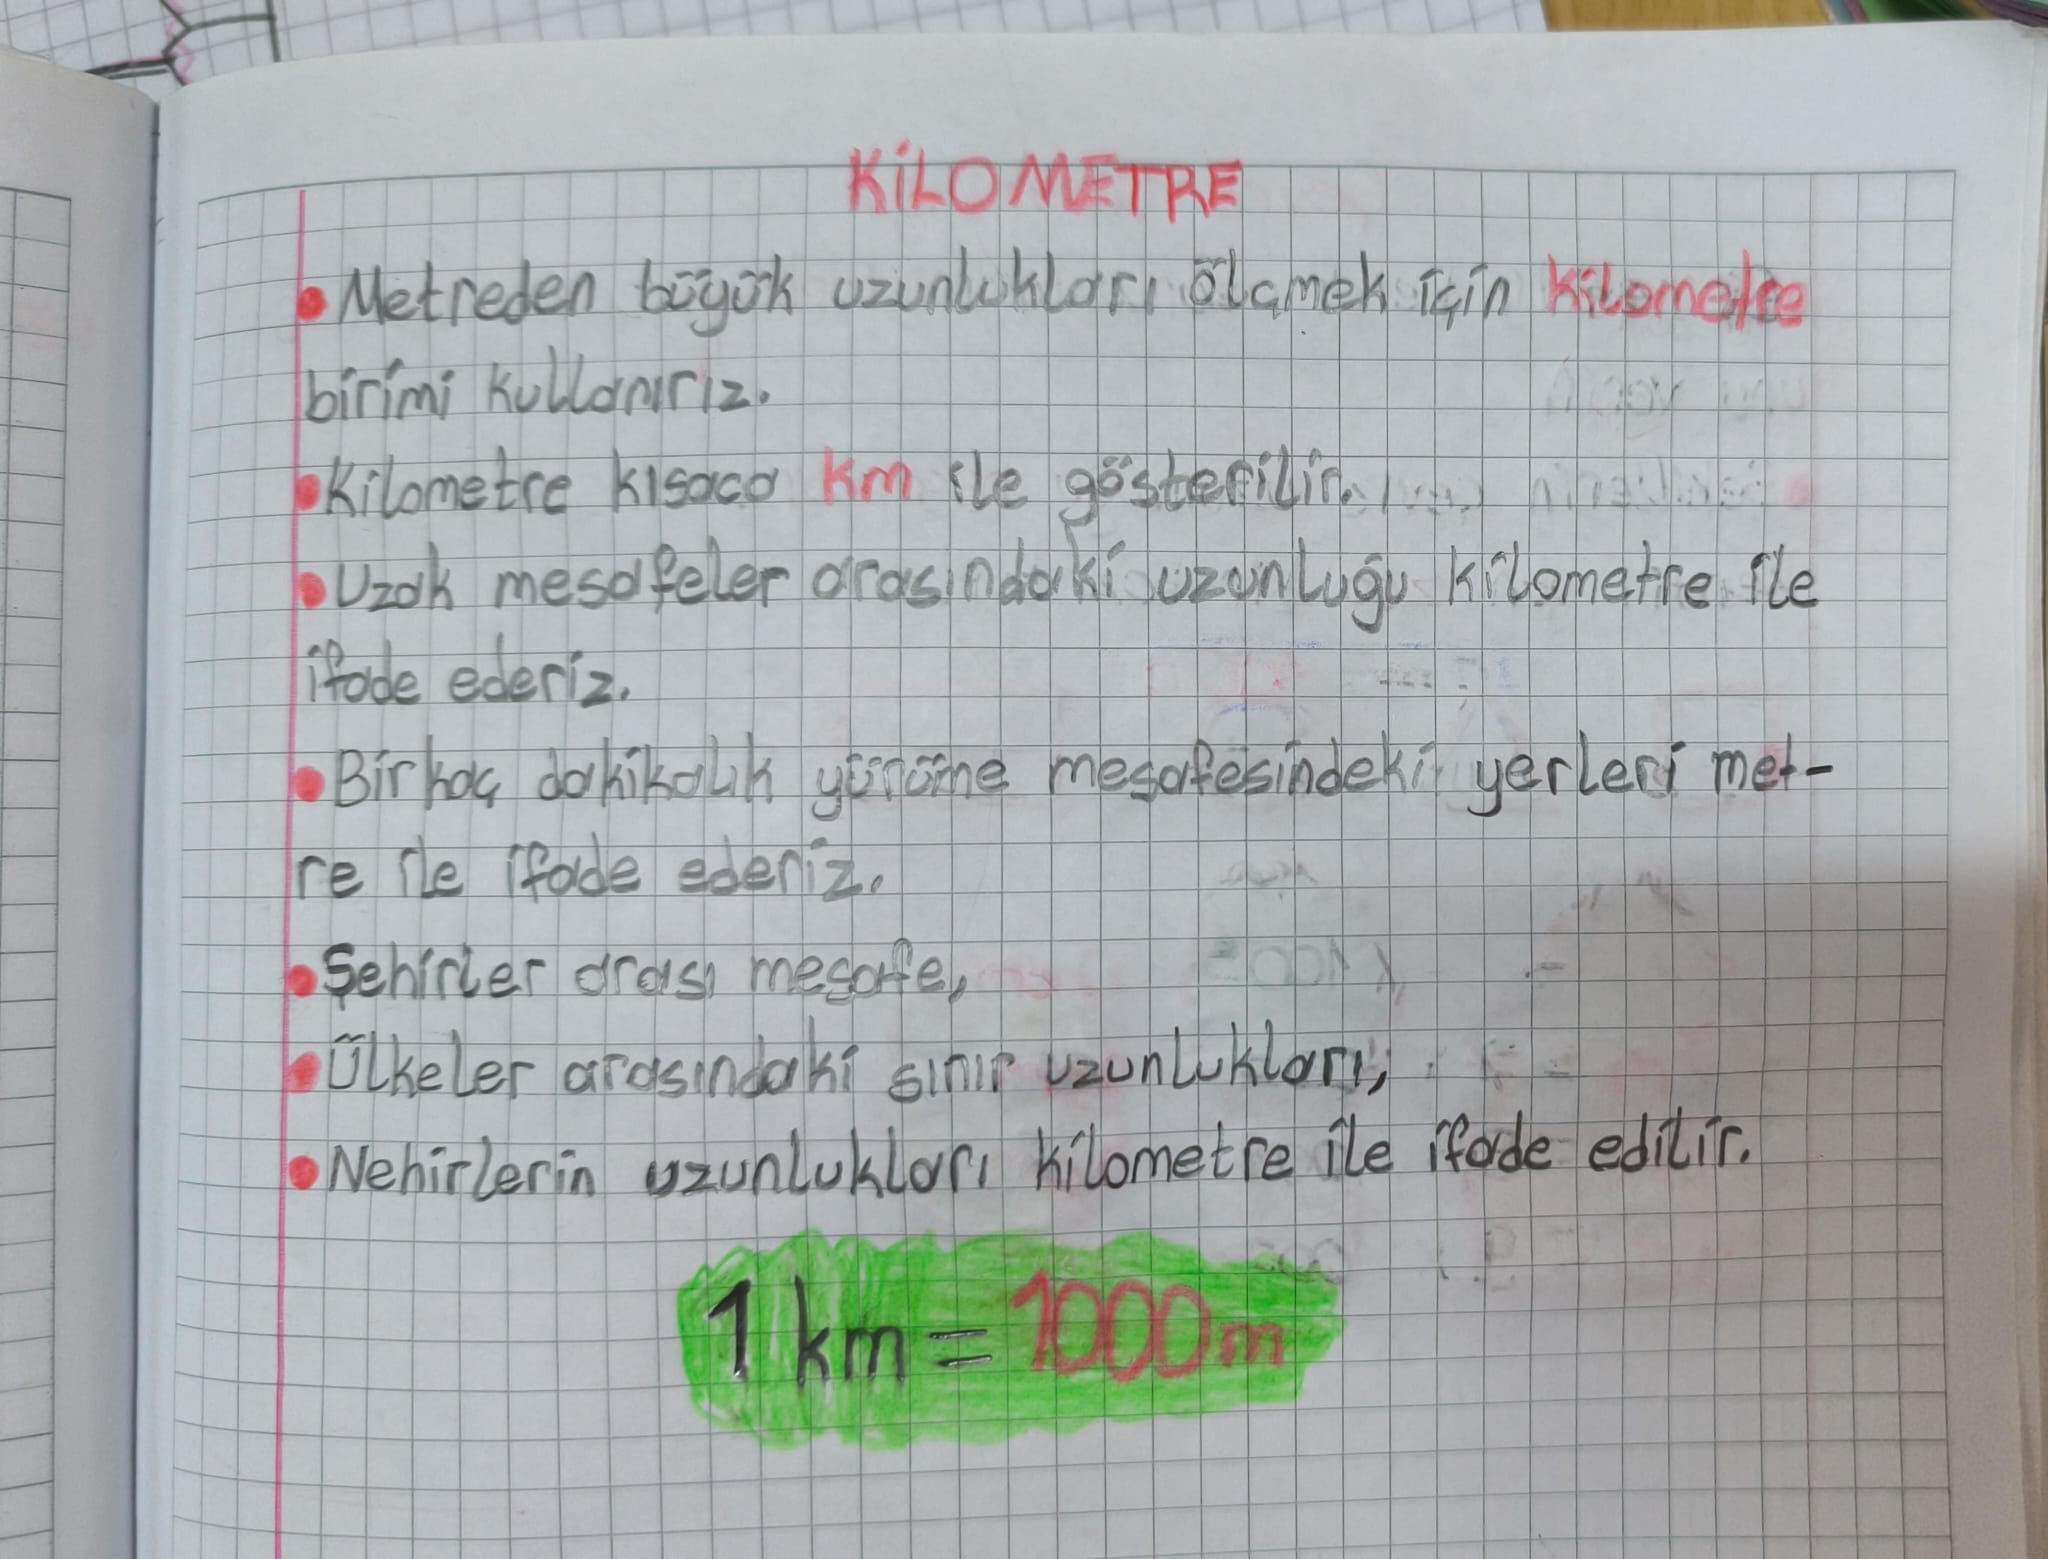 KİLOMETRE
• Metreden büyük uzunlukları ölçmek için kilometre
birimi kullanırız.
• Kilometre kısaca km ile gösterilir.
• Uzak mesafeler arasındaki uzunluğu kilometre ile
ifade ederiz.
• Birkaç dakikalık yürüme mesafesindeki yerleri met-
re ile ifade ederiz.
• Şehirler arası mesafe,
• Ülkeler arasındaki sınır uzunlukları,
• Nehirlerin uzunlukları kilometre ile ifade edilir.
1 km = 1000 m